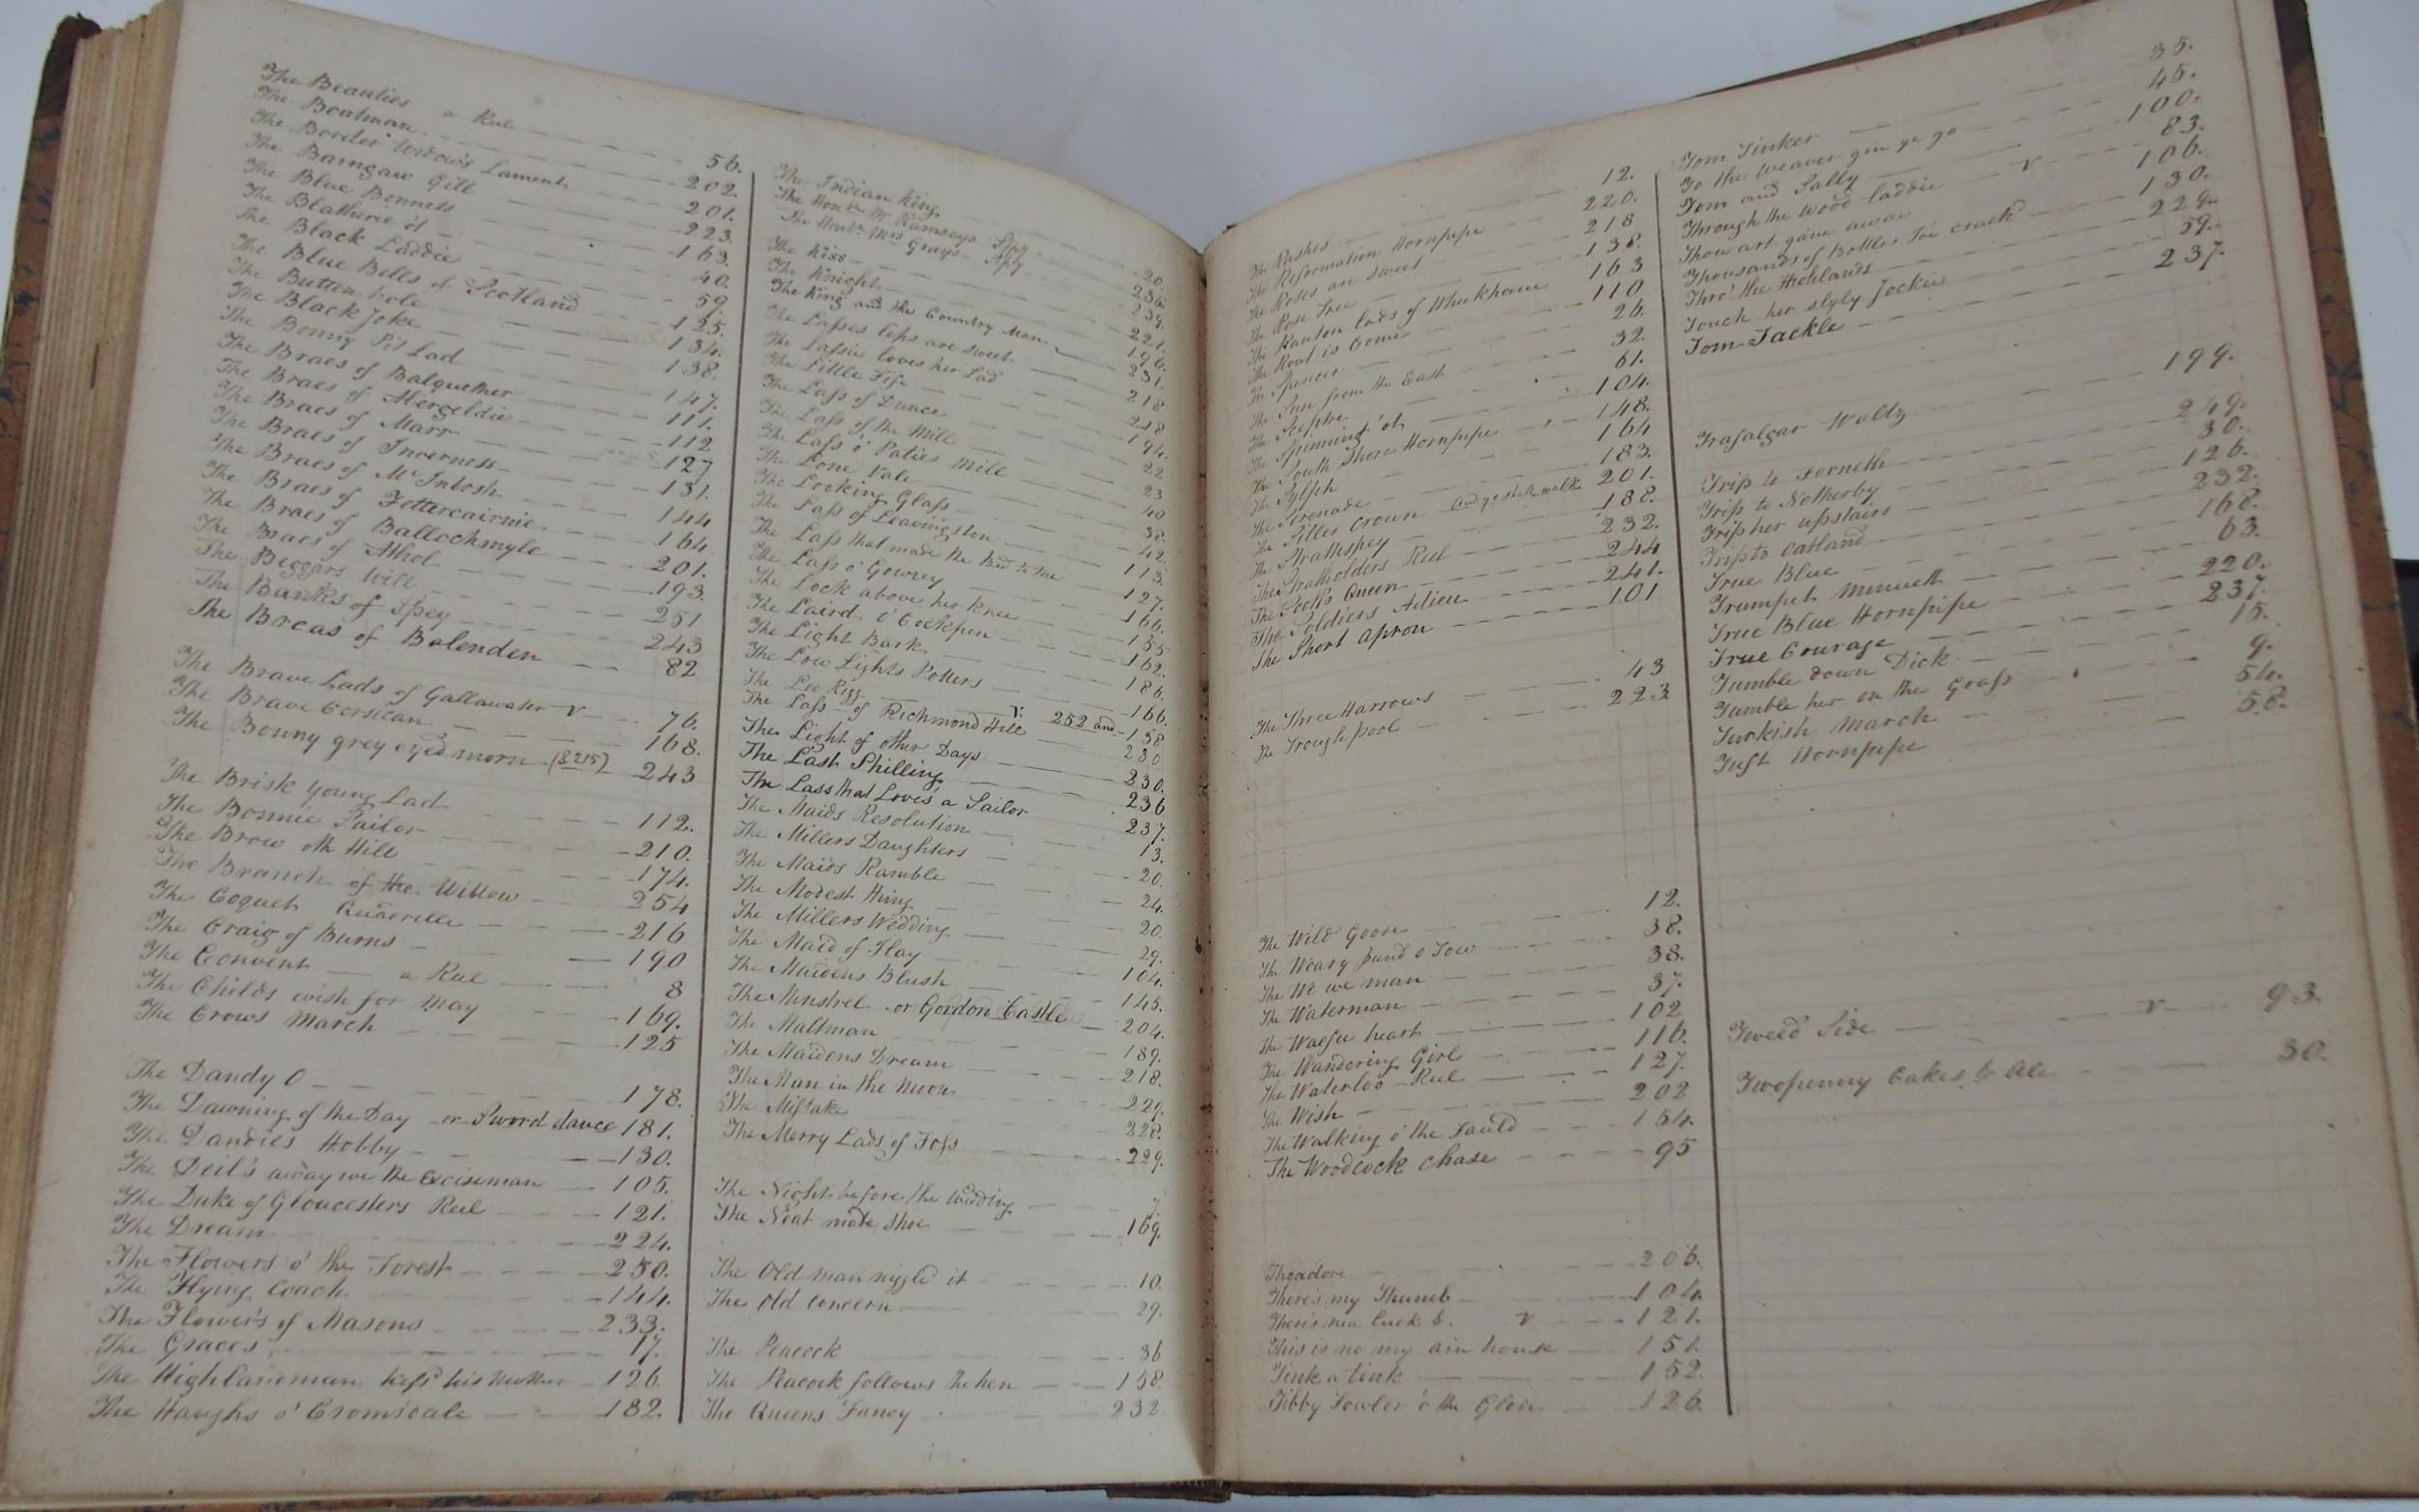 The Beauties a Reel 56.
The Boatman 202
The Border Widow's Lament 201.
The Barngaw Gill 223.
The Blue Bonnets 163.
The Blatherie o't 40.
The Black Laddie 59.
The Blue Bells of Scotland 125.
The Button hole 134.
The Black Joke 138.
The Bonny Pit Lad 147.
The Braes of Balquither 111.
The Braes of Abergeldie 112
The Braes of Marr 127
The Braes of Inverness 131.
The Braes of McIntosh 144
The Braes of Fettercairnie 164
The Braes of Ballochmyle 201.
The Braes of Athol 193
The Beggars Will 251
The Banks of Spey 243
The Breas of Balenden 82
The Brave Lads of Gallawater V 76.
The Brave Corsican 168.
The Bonny grey eyed morn (& 215) 243
The Brisk Young Lad 112.
The Bonnie Sailor 210.
The Brow oth Hill 174.
The Branch of the Willow 254
The Coquet Quadrille 216
The Craig of Burns 190
The Convent a Reel 8
The Childs wish for May 169.
The Crows March 125
The Dandy O 178.
The Dawning of the Day or Sword dance 181.
The Dandies Hobby 130.
The Deil's away wi the Exciseman 105.
The Duke of Gloucesters Reel 121.
The Dream 224.
The Flowers o' the Forest 250.
The Flying Coach 144.
The Flowers of Masons 233.
The Graces 17.
The Highlandman kiss'd his Mother 126.
The Haughs o' Cromdale 182.
The Indian King 20.
The Honble Mr Ramseys Spy 236.
The Honble Mrs Grays Spy 239.
The Kiss 221.
The Knight 196.
The King and the Country Man 231.
The Lasses lips are sweet 218
The Lassie loves her Lad 218
The Little Fife 194.
The Lass of Dunce 22
The Lass of the Mill 23
The Lass o' Paties Mill 40
The Lone Vale 38.
The Looking Glass 42.
The Lass of Leavingston 113.
The Lass that made the bed to me 127.
The Lass o' Gowrey 166.
The Lock above her knee 155
The Laird o' Cockpen 162.
The Light Bark 186.
The Low Lights Potters 166.
The Lee Rigg V. 252 and 158
The Lass of Richmond Hill 230
The Light of other Days 230.
The Last Shilling 236
The Lass that Loves a Sailor 237.
The Maids Resolution 13.
The Millers Daughters 20.
The Maids Ramble 24.
The Modest thing 20.
The Millers Wedding 29.
The Maid of Islay 104.
The Maidens Blush 145.
The Minstrel or Gordon Castle 204.
The Maltman 189.
The Maidens Dream 218.
The Man in the Moon 229.
The Mistake 228.
The Merry Lads of Foss 229.
The Night before the Wedding 7.
The Neat made Shoe 169.
The Old man niggled it 10.
The Old Concern 29.
The Peacock 36
The Peacock follows the hen 158.
The Queens Fancy 232
The Rashes 12.
The Reformation Hornpipe 220.
The Roses are sweet 218
The Rose Tree 138.
The Ranton lads of Whickham 163
The Rout is Come 110
The Spencer 26.
The Sun from the East 32.
The Sceptre 61.
The Spinning o't 104.
The South Shore Hornpipe 148.
The Sylph 164
The Serenade 183.
The Siller Crown And ye shall walk 201.
The Strathspey 188.
The Stratholders Reel 232.
The Scott's Queen 244
The Soldiers Adieu 241.
The Short Apron 101
The Three Harrows 43
The Trough pool 223
The Wild Goose 12.
The Weary pund o Tow 38.
The We we man 38.
The Waterman 37.
The Waefu heart 102
The Wandering Girl 116.
The Waterloo Reel 127.
The Wish 202
The Walking o' the Fauld 154.
The Woodcock Chase 95
Theodore 206.
There's my Thumb 104.
There's nea luck &. V 121.
This is no my ain house 151.
Tink a tink 152.
Tibby Fowler o' the Glen 126.
Tom Tinker 35.
To the Weaver gin ye go 45.
Tom and Sally 100.
Through the Wood laddie V 83.
Thou art gane awae 106.
Thousands of Bottles I've crack'd 130.
Thro' the Highlands 229.
Touch her slyly Jockie 59.
Tom Tackle 237.
Trafalgar Waltz 199.
Trip to Forneth 249.
Trip to Notherby 30.
Trip her upstairs 126.
Trip to Oatland 232.
True Blue 168.
Trumpet Minuett 63.
True Blue Hornpipe 220.
True Courage 237.
Tumble down Dick 15.
Tumble her on the Grass 9.
Turkish March 54.
Tust Hornpipe 58.
Tweed Side V 93.
Twopenny Cakes & Ale 30.